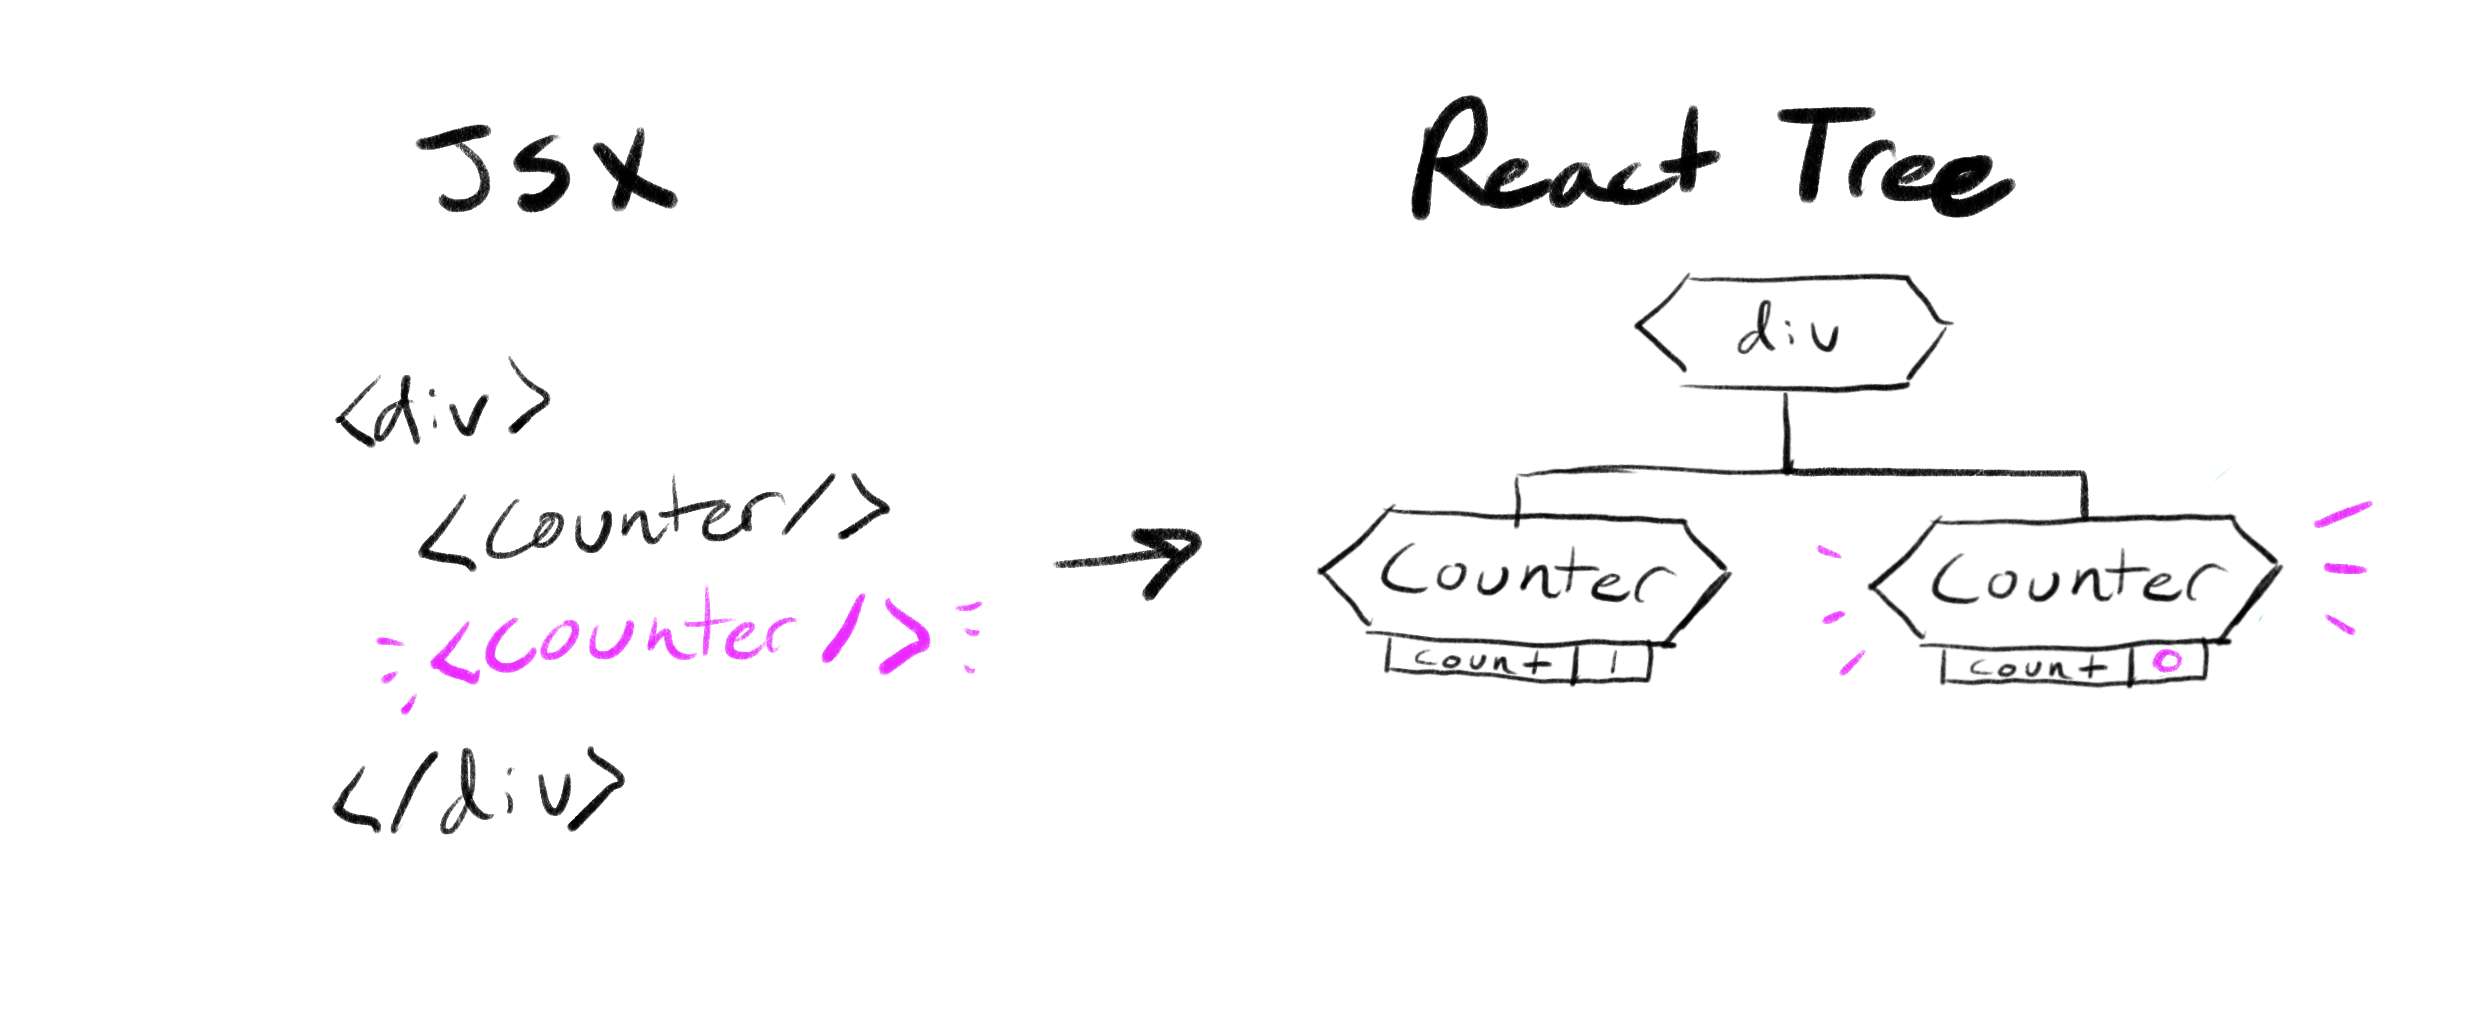 JSX
<div>
<Counter/>
<Counter/>
</div>
React Tree
div
Counter
count 1
Counter
count 0